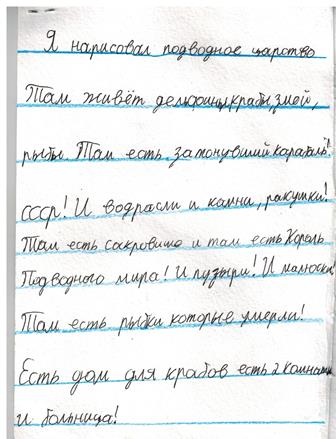 Я нарисовал подводное царство
Там живёт дельфины, крабы, змей,
рыбы. Там есть затонувший карабль!
СССР! И водрасли и камни, ракушки!
Там есть сокровище и там есть Король
Подводного мира! И пузыри! И малюски!
Там есть рыбки которые умерли!
Есть дом для крабов есть 2 комнаты
и больница!